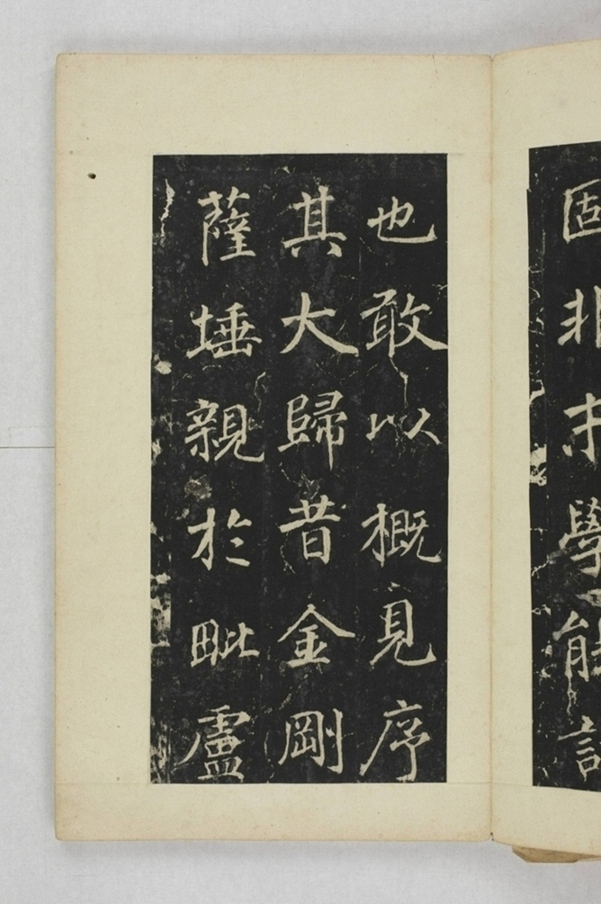 固非才學能詳
也敢以概見序
其大歸昔金剛
薩埵親於毗盧